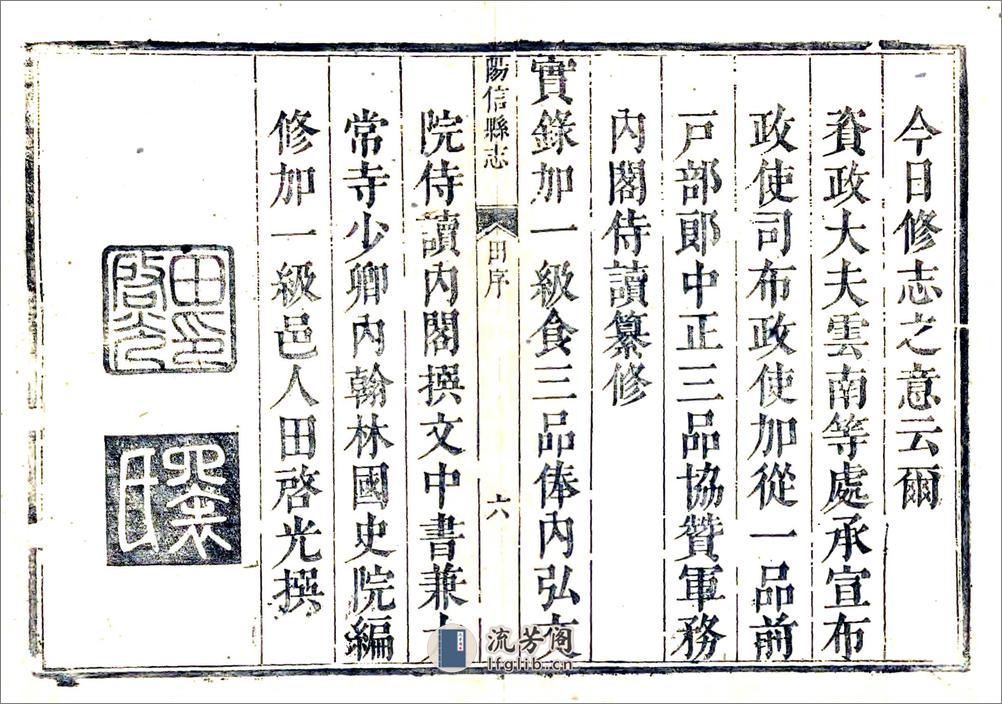 今日修志之意云爾
資政大夫雲南等處承宣布
政使司布政使加從一品前
戸部郎中正三品協贊軍務
內閣侍讀纂修
實錄加一級食三品俸內弘文
陽信縣志
田序
六
院侍讀內閣撰文中書兼
常寺少卿內翰林國史院編
修加一級邑人田啓光撰
田印啓光
流芳阁
lfglib.cn